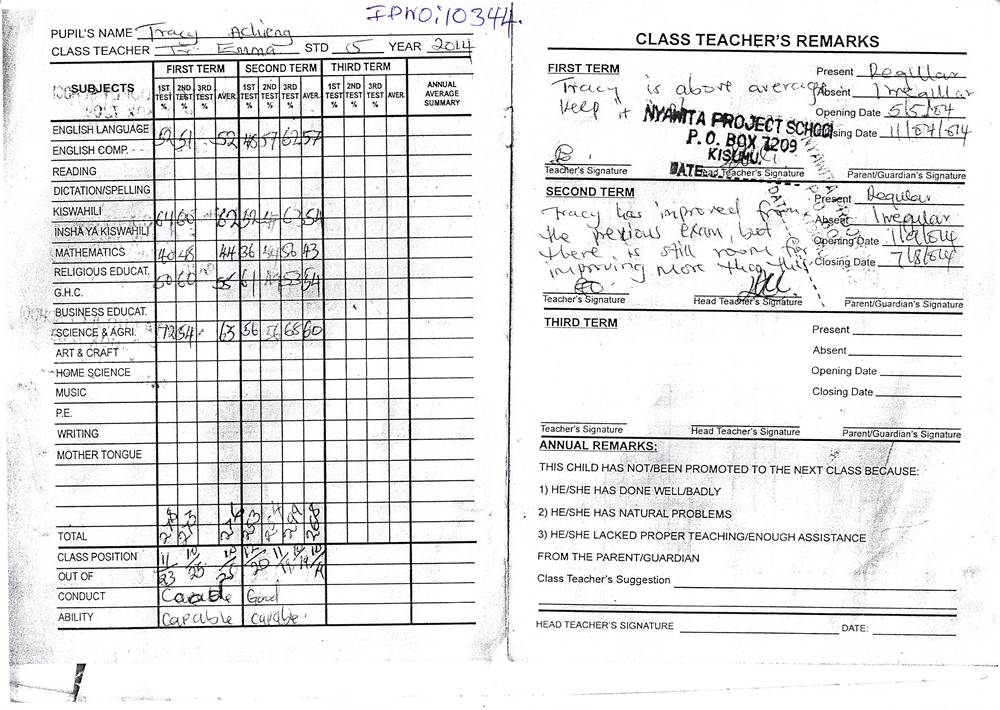 IPNO:10344.
PUPIL'S NAME Tracy Achieng
CLASS TEACHER Tr. Emma STD 5 YEAR 2014
SUBJECTS FIRST TERM SECOND TERM THIRD TERM ANNUAL AVERAGE SUMMARY
1ST TEST % 2ND TEST % 3RD TEST % AVER. 1ST TEST % 2ND TEST % 3RD TEST % AVER. 1ST TEST % 2ND TEST % 3RD TEST % AVER.
ENGLISH LANGUAGE 52 51 52 48 57 62 57
ENGLISH COMP.
READING
DICTATION/SPELLING
KISWAHILI 64 60 62 63 54
INSHA YA KISWAHILI
MATHEMATICS 40 48 44 36 44 56 43
RELIGIOUS EDUCAT. 50 60 55 61 53 54
G.H.C.
BUSINESS EDUCAT.
SCIENCE & AGRI. 72 54 63 56 56 65 60
ART & CRAFT
HOME SCIENCE
MUSIC
P.E.
WRITING
MOTHER TONGUE
TOTAL
CLASS POSITION 11 10 10 12 11
OUT OF 23 25 25 20
CONDUCT Good
ABILITY Capable capable
CLASS TEACHER'S REMARKS
FIRST TERM
Tracy is above average
Keep it
Present Regular
Absent Irregular
Opening Date 5/5/014
Closing Date 11/04/014
NYAWITA PROJECT SCHOOL
P.O. BOX 7209
KISUMU.
DATE
Teacher's Signature Head Teacher's Signature Parent/Guardian's Signature
SECOND TERM
Tracy has improved from
the previous exam, but
there is still room for
improving more than this
Present Regular
Absent Irregular
Opening Date 1/9/014
Closing Date 7/8/014
Teacher's Signature Head Teacher's Signature Parent/Guardian's Signature
THIRD TERM
Present
Absent
Opening Date
Closing Date
Teacher's Signature Head Teacher's Signature Parent/Guardian's Signature
ANNUAL REMARKS:
THIS CHILD HAS NOT/BEEN PROMOTED TO THE NEXT CLASS BECAUSE:
1) HE/SHE HAS DONE WELL/BADLY
2) HE/SHE HAS NATURAL PROBLEMS
3) HE/SHE LACKED PROPER TEACHING/ENOUGH ASSISTANCE
FROM THE PARENT/GUARDIAN
Class Teacher's Suggestion
HEAD TEACHER'S SIGNATURE DATE: